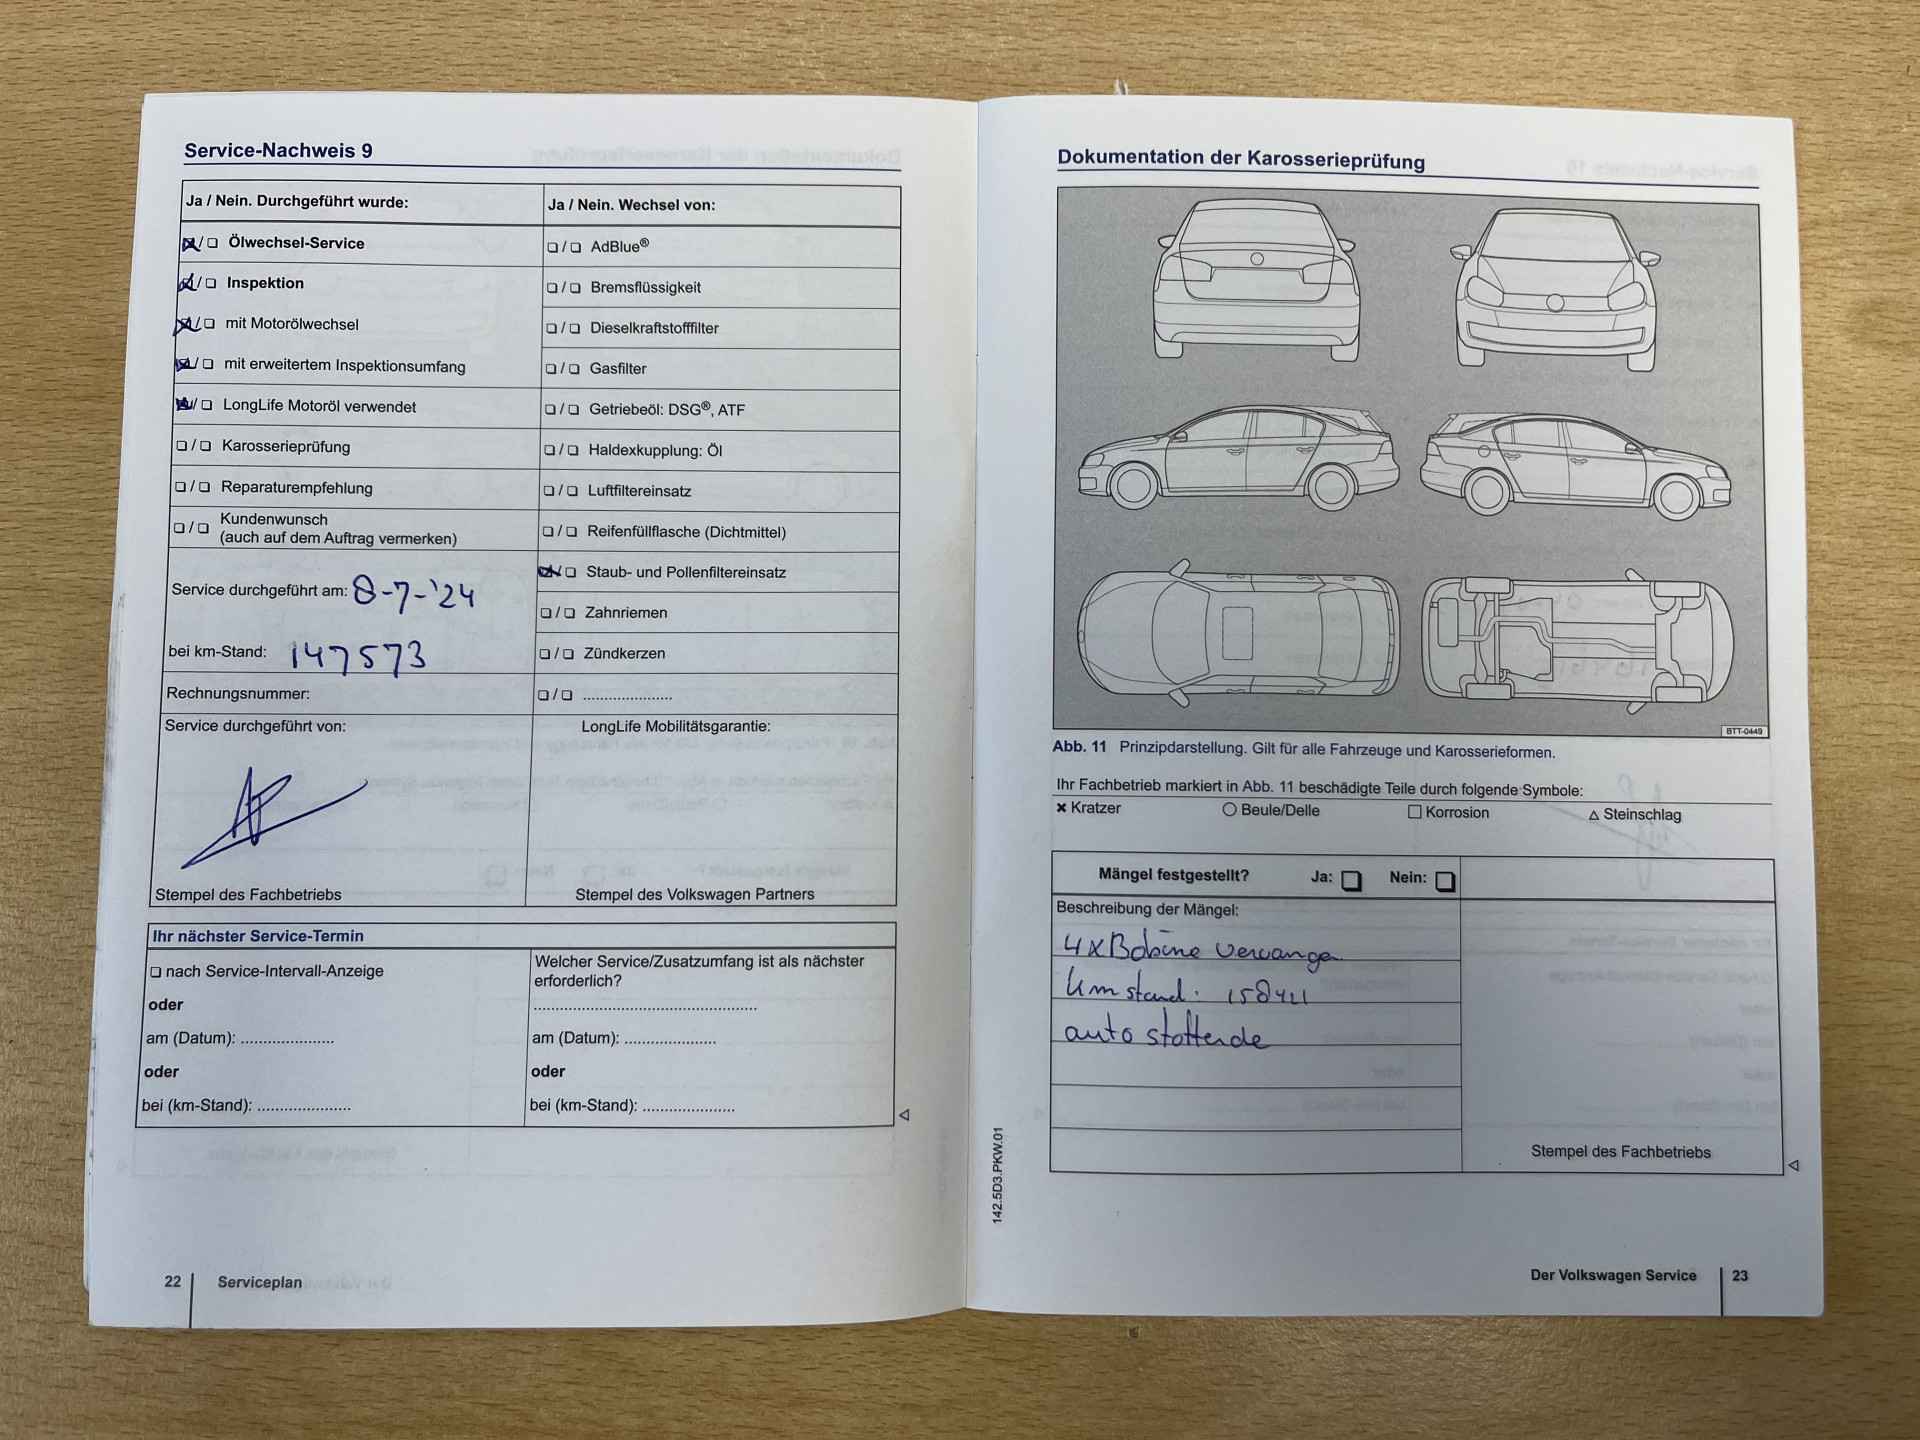 Service-Nachweis 9
Ja / Nein. Durchgeführt wurde:
Ölwechsel-Service
Inspektion
mit Motorölwechsel
mit erweitertem Inspektionsumfang
LongLife Motoröl verwendet
Karosserieprüfung
Reparaturempfehlung
Kundenwunsch
(auch auf dem Auftrag vermerken)
Service durchgeführt am: 8-7-'24
bei km-Stand: 147573
Rechnungsnummer:
Service durchgeführt von:
Stempel des Fachbetriebs
Ja / Nein. Wechsel von:
AdBlue®
Bremsflüssigkeit
Dieselkraftstofffilter
Gasfilter
Getriebeöl: DSG®, ATF
Haldexkupplung: Öl
Luftfiltereinsatz
Reifenfüllflasche (Dichtmittel)
Staub- und Pollenfiltereinsatz
Zahnriemen
Zündkerzen
.....................
LongLife Mobilitätsgarantie:
Stempel des Volkswagen Partners
Ihr nächster Service-Termin
nach Service-Intervall-Anzeige
oder
am (Datum): .....................
oder
bei (km-Stand): .....................
Welcher Service/Zusatzumfang ist als nächster
erforderlich?
..................................................
am (Datum): .....................
oder
bei (km-Stand): .....................
22 Serviceplan
Dokumentation der Karosserieprüfung
BTT-0449
Abb. 11 Prinzipdarstellung. Gilt für alle Fahrzeuge und Karosserieformen.
Ihr Fachbetrieb markiert in Abb. 11 beschädigte Teile durch folgende Symbole:
Kratzer Beule/Delle Korrosion Steinschlag
Mängel festgestellt? Ja: Nein:
Beschreibung der Mängel:
4x Bobine vervangen
km stand: 158421
auto stotterde
Stempel des Fachbetriebs
142.5D3.PKW.01
Der Volkswagen Service 23